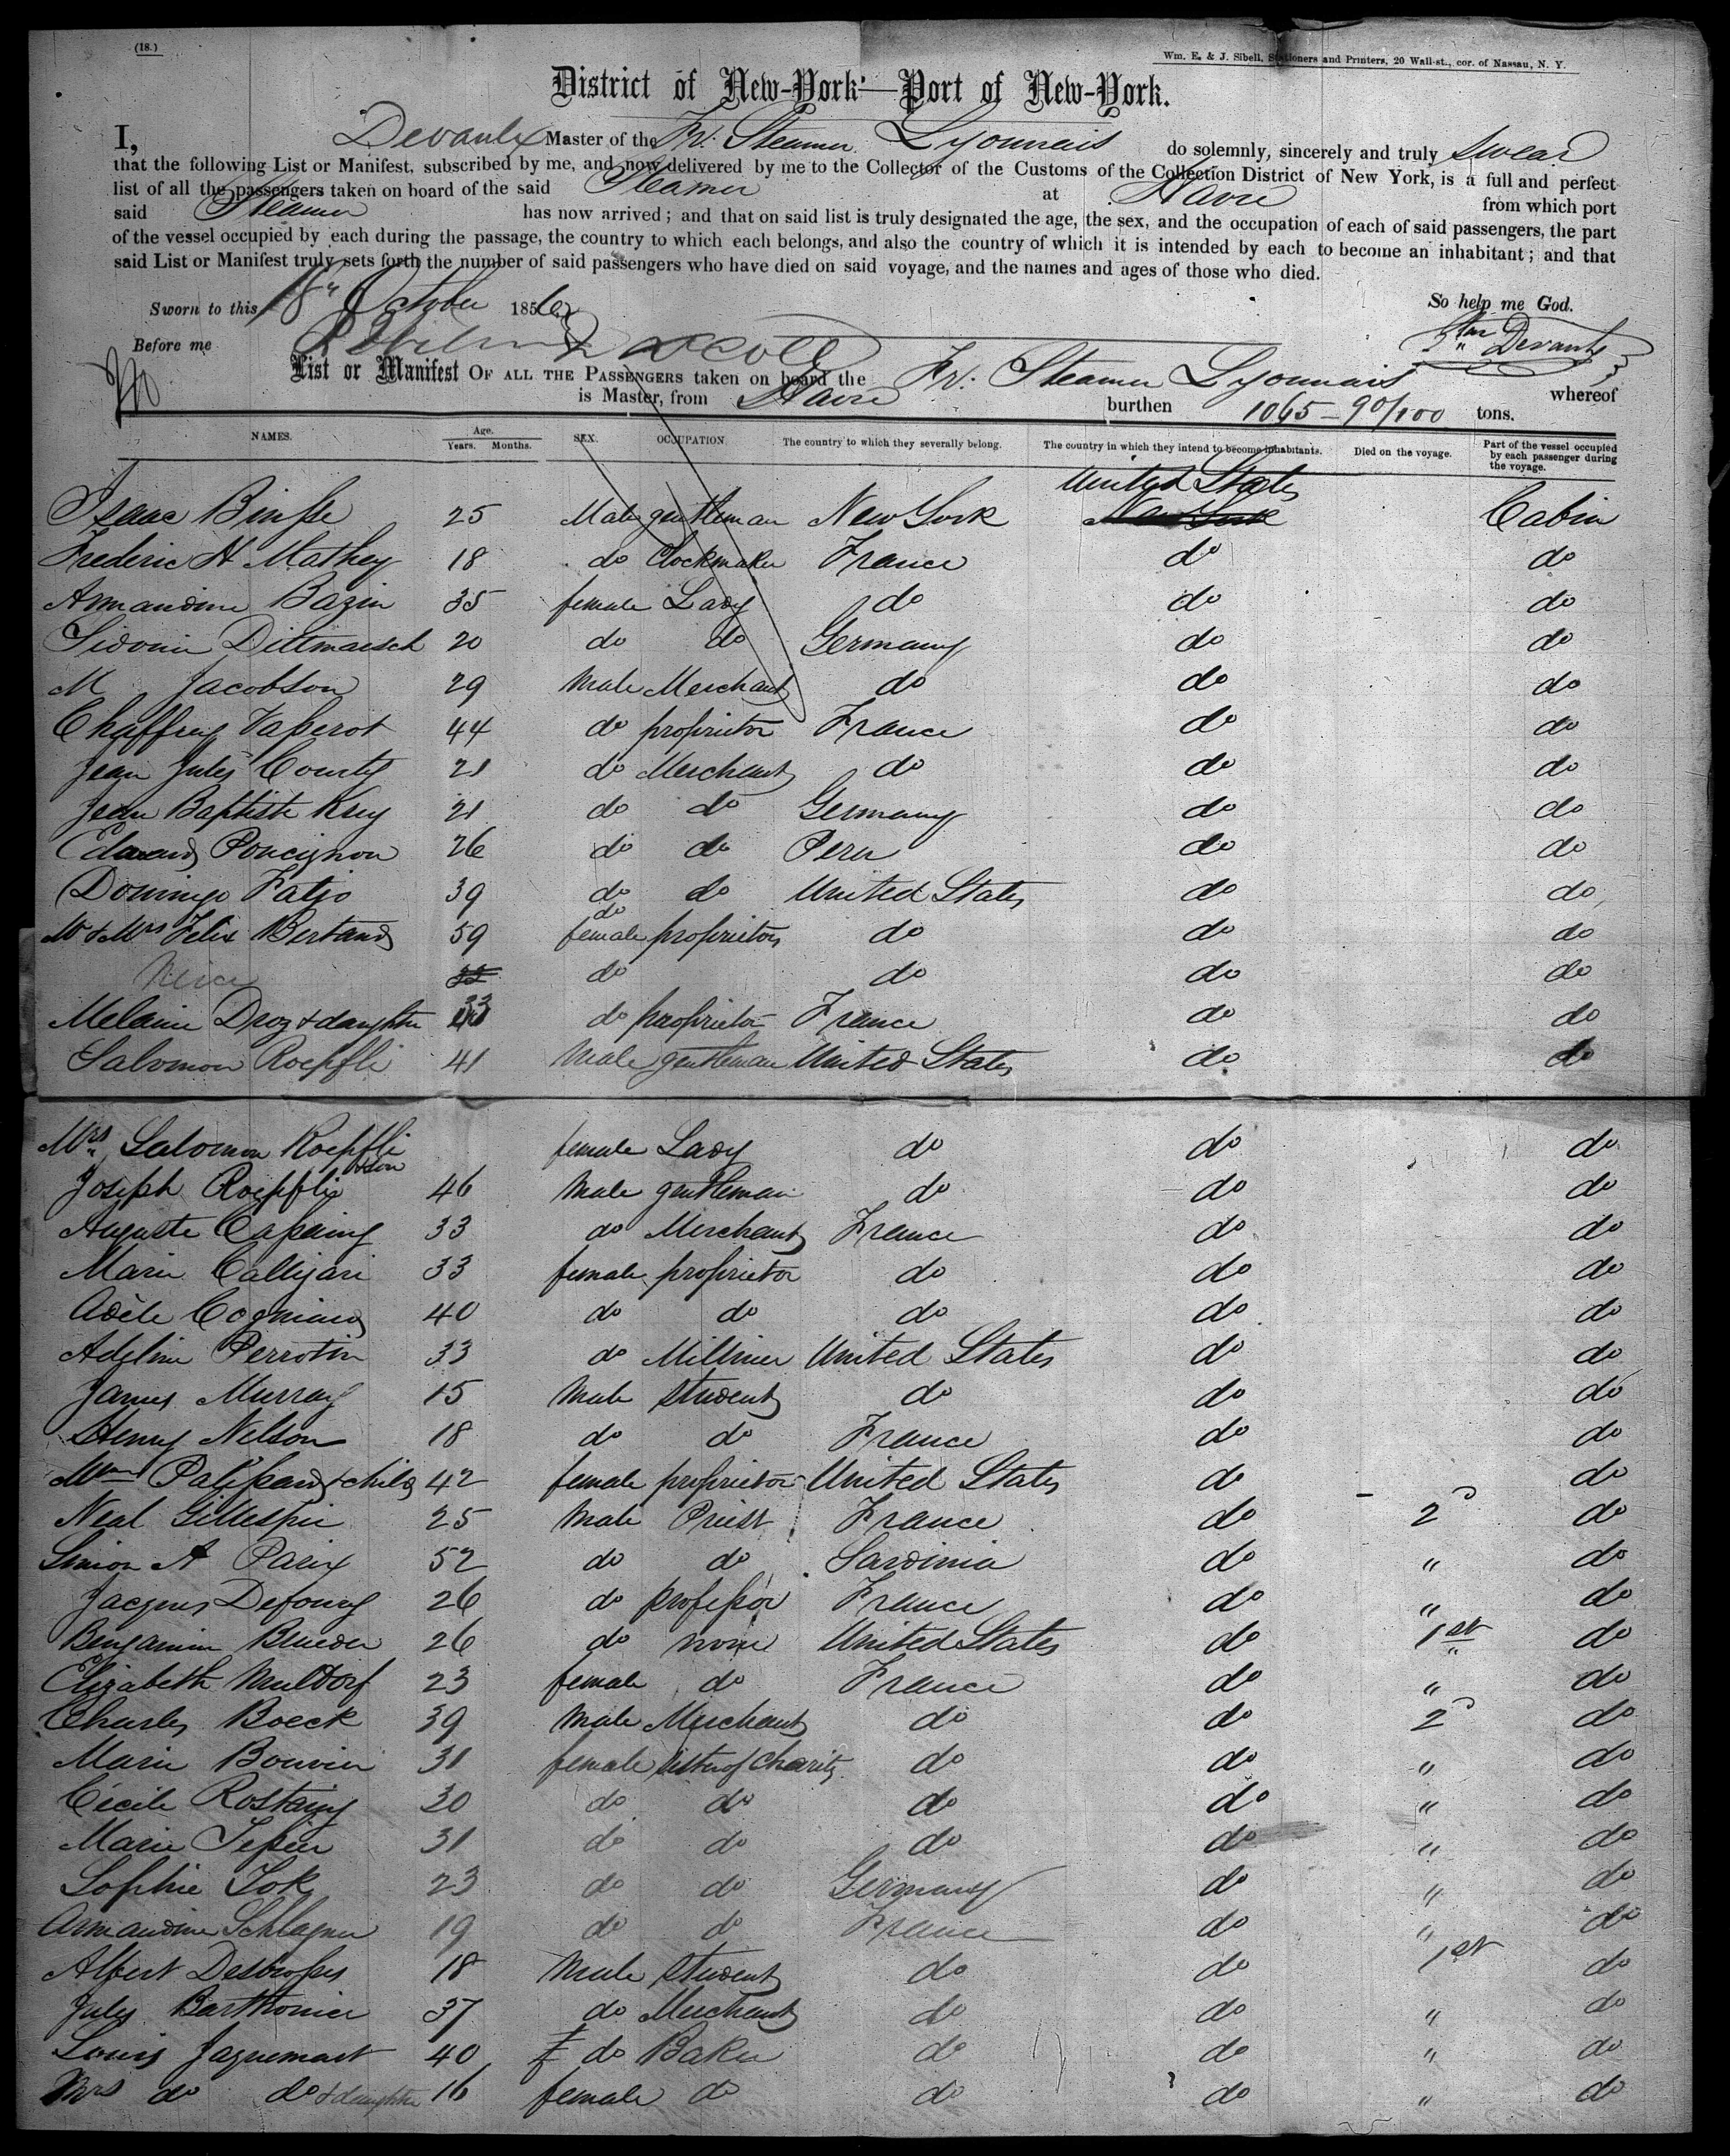 (18.)
Wm. E. & J. Sibell, Stationers and Printers, 20 Wall-st., cor. of Nassau, N. Y.
District of New-York—Port of New-York.
I, Devaulx Master of the Fr. Steamer Lyonnais do solemnly, sincerely and truly swear
that the following List or Manifest, subscribed by me, and now delivered by me to the Collector of the Customs of the Collection District of New York, is a full and perfect
list of all the passengers taken on board of the said Steamer at Havre from which port
said Steamer has now arrived; and that on said list is truly designated the age, the sex, and the occupation of each of said passengers, the part
of the vessel occupied by each during the passage, the country to which each belongs, and also the country of which it is intended by each to become an inhabitant; and that
said List or Manifest truly sets forth the number of said passengers who have died on said voyage, and the names and ages of those who died.
Sworn to this 18" October 1856 So help me God.
Before me Devaulx
List or Manifest OF ALL THE PASSENGERS taken on board the Fr. Steamer Lyonnais whereof
is Master, from Havre burthen 1065-90/100 tons.
NAMES. Age. Years. Months. SEX. OCCUPATION The country to which they severally belong. The country in which they intend to become inhabitants. Died on the voyage. Part of the vessel occupied by each passenger during the voyage.
United States
Isaac Binsse 25 Male gentleman New York New York Cabin
Frederic H Mathey 18 do Clockmaker France do do
Armandine Bazin 35 female Lady do do do
Sidonie Dittmarsch 20 do do Germany do do
M Jacobson 29 Male Merchant do do do
Chaffrey Taperot 44 do proprietor France do do
Jean Jules Courty 21 do Merchant do do do
Jean Baptiste Krey 21 do do Germany do do
Edward Poncignon 26 do do Peru do do
Domingo Fatjo 39 do do United States do do
do
Mr & Mrs Felix Bertand 59 female proprietors do do do
Niece do do do do
Melanie Droz & daughter 33 do proprietor France do do
Salomon Roepfli 41 Male gentleman United States do do
Mrs Salomon Roepfli female Lady do do do
Joseph Roepfli & son 46 Male gentleman do do do
Auguste Capdeing 33 do Merchant France do do
Marie Calligari 33 female proprietor do do do
Adèle Cogniard 40 do do do do do
Adeline Perrotin 33 do Milliner United States do do
James Murray 15 Male student do do do
Henry Nelson 18 do do France do do
Mme Palissard & child 42 female proprietor United States do do
Neal Gillespie 25 Male Priest France do 2d do
Simon A Parix 52 do do Sardinia do " do
Jacques Defouny 26 do professor France do " do
Benjamin Brueder 26 do none United States do 1st do
Elizabeth Muldorf 23 female do France do " do
Charles Boeck 39 Male Merchant do do 2d do
Marie Bouvier 31 female sister of Charity do do " do
Cécile Rostaing 30 do do do do " do
Marie Tessier 31 do do do do " do
Sophie Tok 23 do do Germany do " do
Armandine Schlagner 19 do do France do " do
Albert Desbrosses 18 Male student do do 1st do
Jules Barthonier 37 do Merchant do do " do
Louis Jaquemart 40 do Baker do do " do
Mrs do do & daughter 16 female do do do " do